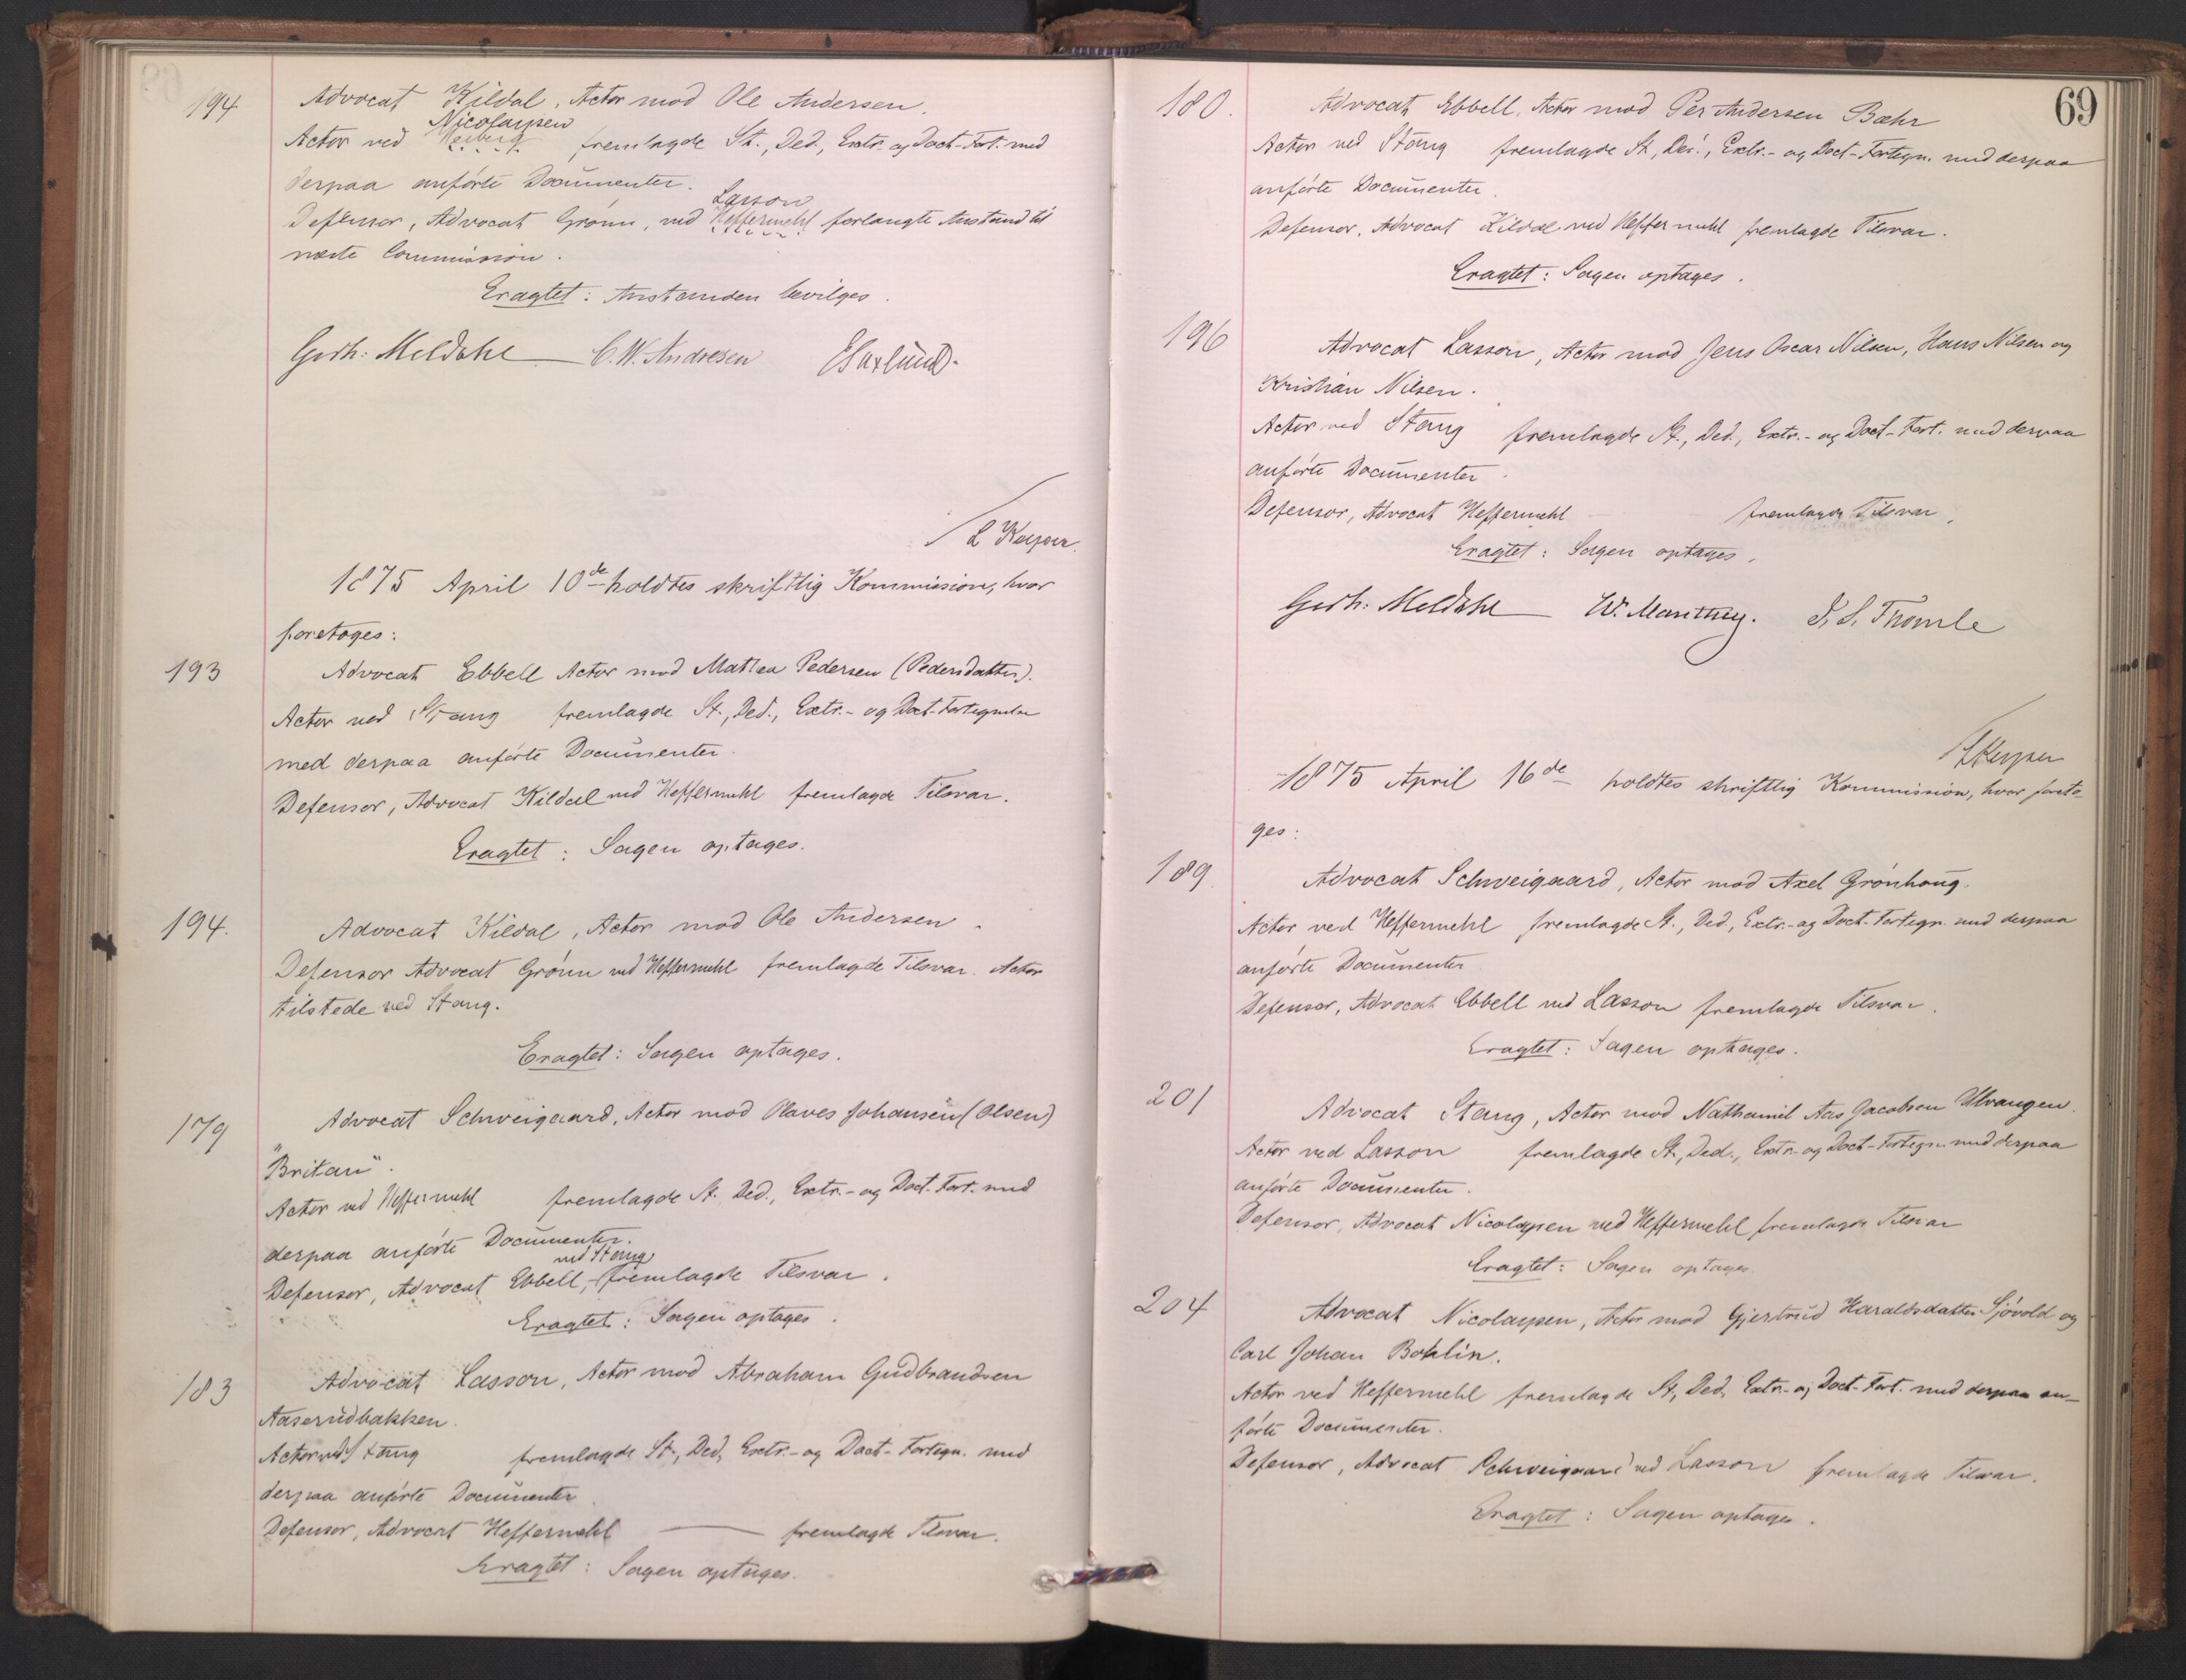 194 Advocat Kildal, Actor mod Ole Andersen.
Nicolaysen
Actor ved fremlagde St., Ded., Extr.- og Doct-Fort. med
derpaa anførte Documenter.
Lasson
Defensor, Advocat Grönn, ved Heffermehl forlangte Anstand til
næste Commission.
Eragtet: Anstanden bevilges.
Godh: Meldahl C. W. Andresen ESaxlund.
L Keyser
1875 April 10de holdtes skriftlig Kommission, hvor
foretoges:
193 Advocat Ebbell Actor mod Mathea Pedersen (Pedersdatter).
Actor ved Stang fremlagde St., Ded., Extr.- og Doct-Fortegnelse
med derpaa anførte Documenter.
Defensor, Advocat Kildal ved Heffermehl fremlagde Tilsvar.
Eragtet: Sagen optages.
194. Advocat Kildal, Actor mod Ole Andersen.
Defensor Advocat Grönn ved Heffermehl fremlagde Tilsvar. Actor
tilstede ved Stang.
Eragtet: Sagen optages.
179 Advocat Schweigaard, Actor mod Olaves Johansen (Olsen)
"Britan".
Actor ved Heffermehl fremlagde St. Ded., Extr.- og Doct. Fort. med
derpaa anførte Documenter.
ved Stang
Defensor, Advocat Ebbell, fremlagde Tilsvar.
Eragtet: Sagen optages.
183 Advocat Lasson, Actor mod Abraham Gudbrandsen
Aaserudbakken.
Actor ved Stang fremlagde St., Ded, Extr.- og Doct-Fortegn. med
derpaa anførte Documenter
Defensor, Advocat Heffermehl fremlagde Tilsvar.
Eragtet: Sagen optages.
69
180. Advocat Ebbell, Actor mod Per Andersen Bæhr
Actor ved Stang fremlagde St, Ded., Extr.- og Doct-Fortegn. med derpaa
anførte Documenter.
Defensor, Advocat Kildal ved Heffermehl fremlagde Tilsvar.
Eragtet: Sagen optages.
196 Advocat Lasson, Actor mod Jens Oscar Nilsen, Hans Nilsen og
Kristian Nilsen.
Actor ved Stang fremlagde St., Ded., Extr.- og Doct-Fort. med derpaa
anførte Documenter.
Defensor, Advocat Heffermehl fremlagde Tilsvar.
Eragtet: Sagen optages.
Godh: Meldahl W. Manthey. J. S. Thomle
L Keyser
1875 April 16de holdtes skriftlig Kommission, hvor foreto-
ges:
189. Advocat Schweigaard, Actor mod Axel Grönhoug.
Actor ved Heffermehl fremlagde St., Ded., Extr.- og Doct-Fortegn. med derpaa
anførte Documenter
Defensor, Advocat Ebbell ved Lasson fremlagde Tilsvar.
Eragtet: Sagen optages.
201 Advocat Stang, Actor mod Nathanil Aas Jacobsen Ulvangen.
Actor ved Lasson fremlagde St., Ded., Extr.- og Doct-Fortegn. med derpaa
anførte Documenter.
Defensor, Advocat Nicolaysen ved Heffermehl fremlagde Tilsvar
Eragtet: Sagen optages
204 Advocat Nicolaysen, Actor mod Gjertrud Haraldsdatter Sjövold og
Carl Johan Bohlin.
Actor ved Heffermehl fremlagde St, Ded, Extr.- og Doct-Fort. med derpaa an-
førte Documenter.
Defensor, Advocat Schweigaard ved Lasson fremlagde Tilsvar.
Eragtet: Sagen optages.